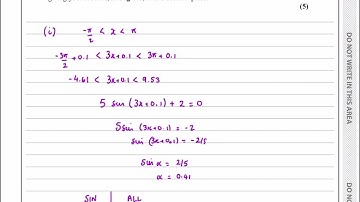 (5)
(i) -π/2 < x < π
-3π/2 + 0.1 < 3x+0.1 < 3π + 0.1
-4.61 < 3x+0.1 < 9.53
5 sin (3x+0.1) + 2 = 0
5sin (3x+0.1) = -2
sin (3x+0.1) = -2/5
sin α = 2/5
α = 0.41
SIN ALL
DO NOT WRITE IN THIS AREA
DO NO